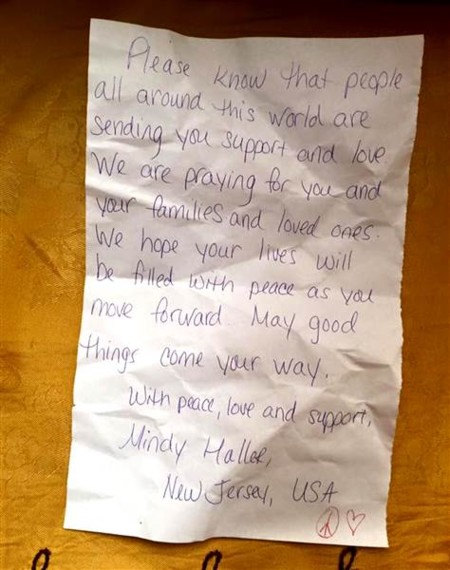 Please know that people
all around this world are
sending you support and love
We are praying for you and
your families and loved ones.
We hope your lives will
be filled with peace as you
move forward May good
things come your way.
With peace, love and support,
Mindy Haller,
New Jersey, USA